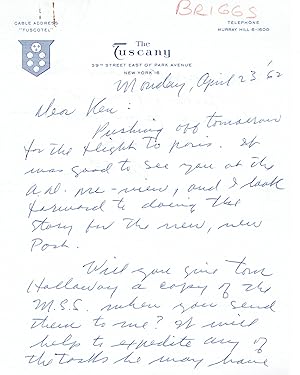 BRIGGS
CABLE ADDRESS
"TUSCOTEL"
TELEPHONE
MURRAY HILL 6-1600
The
Tuscany
39TH STREET EAST OF PARK AVENUE
NEW YORK 16
Monday, April 23 '62
Dear Ken:
Pushing off tomorrow
for the flight to paris. It
was good to see you at the
and I look
forward to doing the
story for the new, new
Post.
Will you give Tom
Hallaway a copy of the
M.S.S. when you send
them to me? It will
help to expedite any of
the tasks he may have